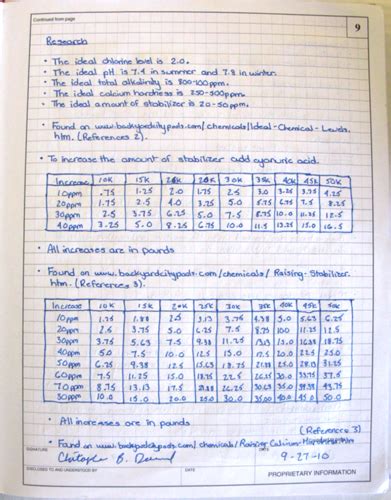 Continued from page
9
Research
• The ideal chlorine level is 2.0.
• The ideal pH is 7.4 in summer and 7.8 in winter.
• The ideal total alkalinity is 800-100ppm.
• The ideal calcium hardness is 250-500ppm.
• The ideal amount of stabilizer is 20-50ppm.
• Found on www.backyardcitypools.com/chemicals/Ideal-Chemical-Levels.
htm. (References 2).
• To increase the amount of stabilizer add cyanuric acid.
Increase 10K 15K 20K 25K 30K 35K 40K 45K 50K
10ppm .75 1.25 2.0 1.75 2.5 3.0 3.25 3.75 4.25
20ppm 1.75 2.5 4.0 3.25 5.0 5.75 6.75 7.5 8.25
30ppm 2.5 3.75 6.25 5.0 7.5 8.75 10.0 11.25 12.5
40ppm 3.25 5.0 8.25 6.75 10.0 11.5 13.25 15.0 16.5
• All increases are in pounds
• Found on www.backyardcitypools.com/chemicals/Raising-Stabilizer.
htm. (References 3).
Increase 10K 15K 20K 25K 30K 35K 40K 45K 50K
10ppm 1.25 1.88 2.5 3.13 3.75 4.38 5.0 5.63 6.25
20ppm 2.5 3.75 5.0 6.25 7.5 8.75 10.0 11.25 12.5
30ppm 3.75 5.63 7.5 9.38 11.25 13.0 18.75
40ppm 5.0 7.5 10.0 12.5 15.0 17.5 20.0 22.5 25.0
50ppm 6.25 9.38 12.5 15.63 18.75 25.0 28.13 31.25
60ppm 7.5 11.25 15.0 18.75 22.5 30.0 33.75 37.5
70ppm 8.75 13.13 17.5 26.25 30.63 35.0 43.75
80ppm 10.0 15.0 20.0 25.0 30.0 35.0 40.0 45.0 50.0
• All increases are in pounds.
(Reference 3)
• Found on www.backyardcitypools.com/chemicals/Raising-Calcium-Hardness.htm
SIGNATURE
DATE
9-27-10
DISCLOSED TO AND UNDERSTOOD BY
DATE
PROPRIETARY INFORMATION